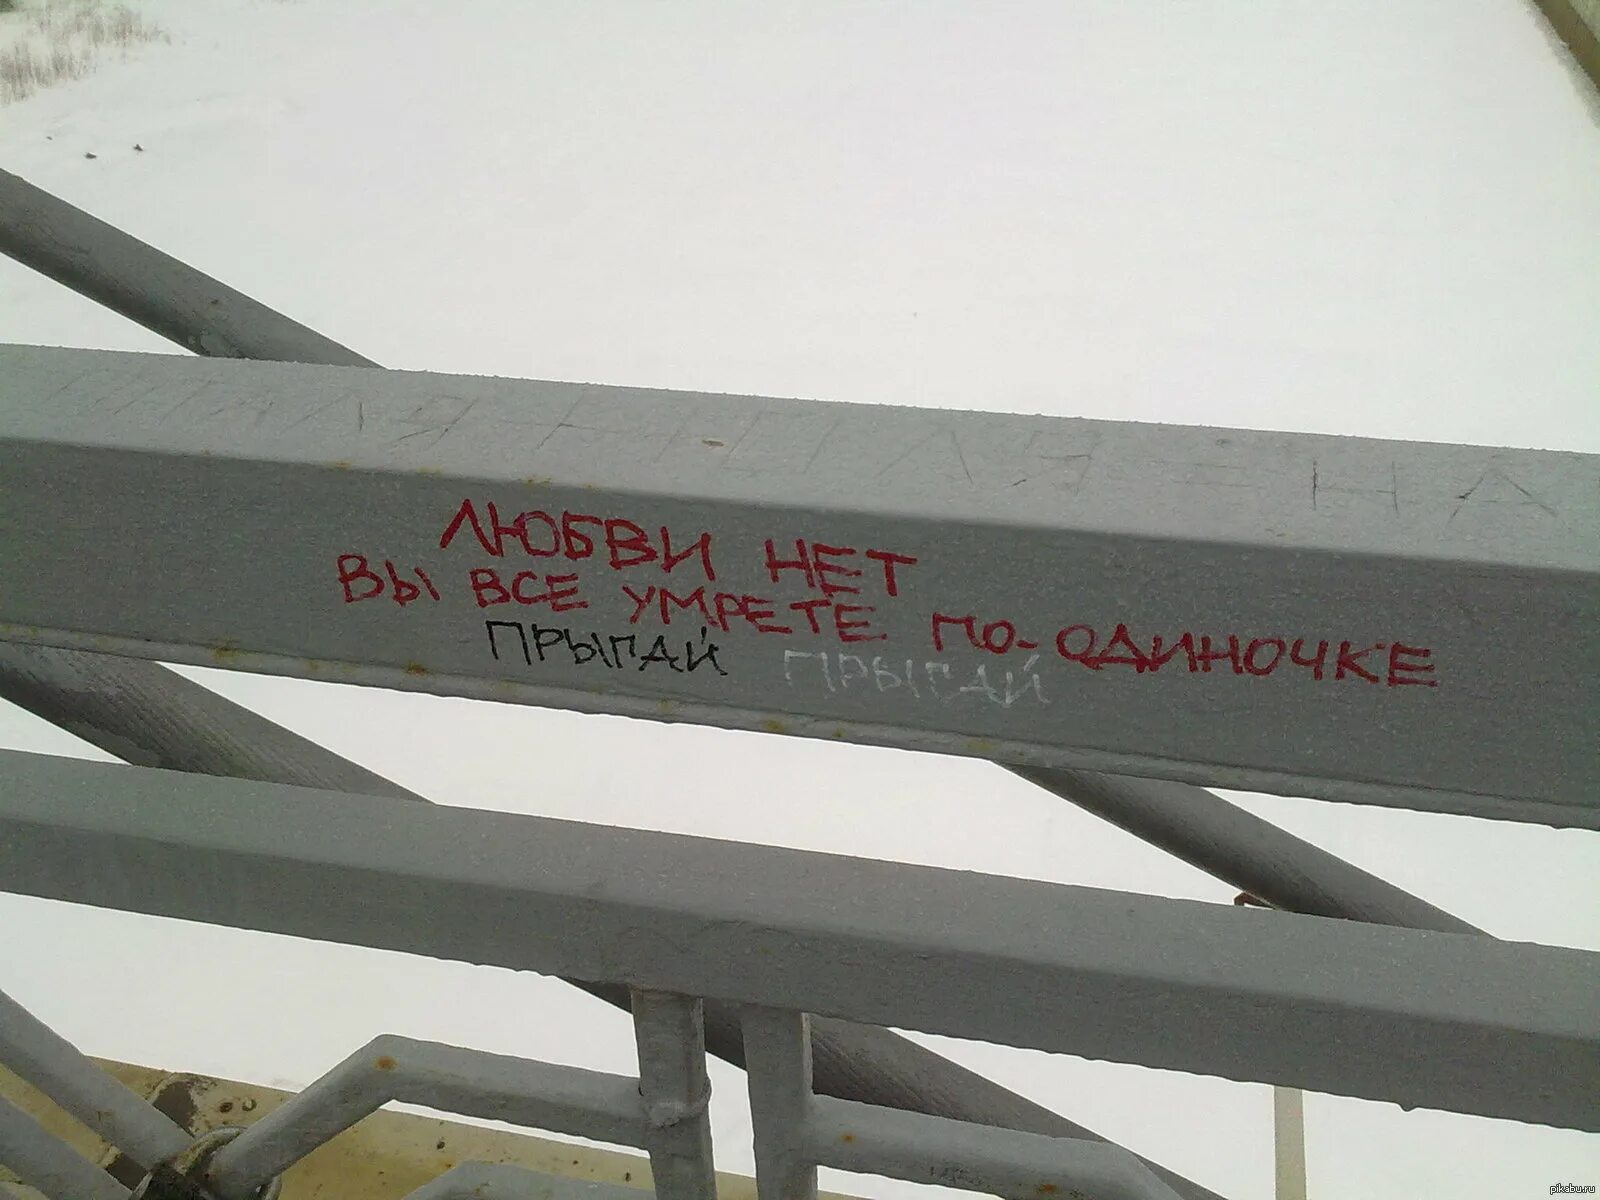 ЛЮБВИ НЕТ
ВЫ ВСЕ УМРЕТЕ ПО-ОДИНОЧКЕ
ПРЫГАЙ ПРЫГАЙ
pikabu.ru